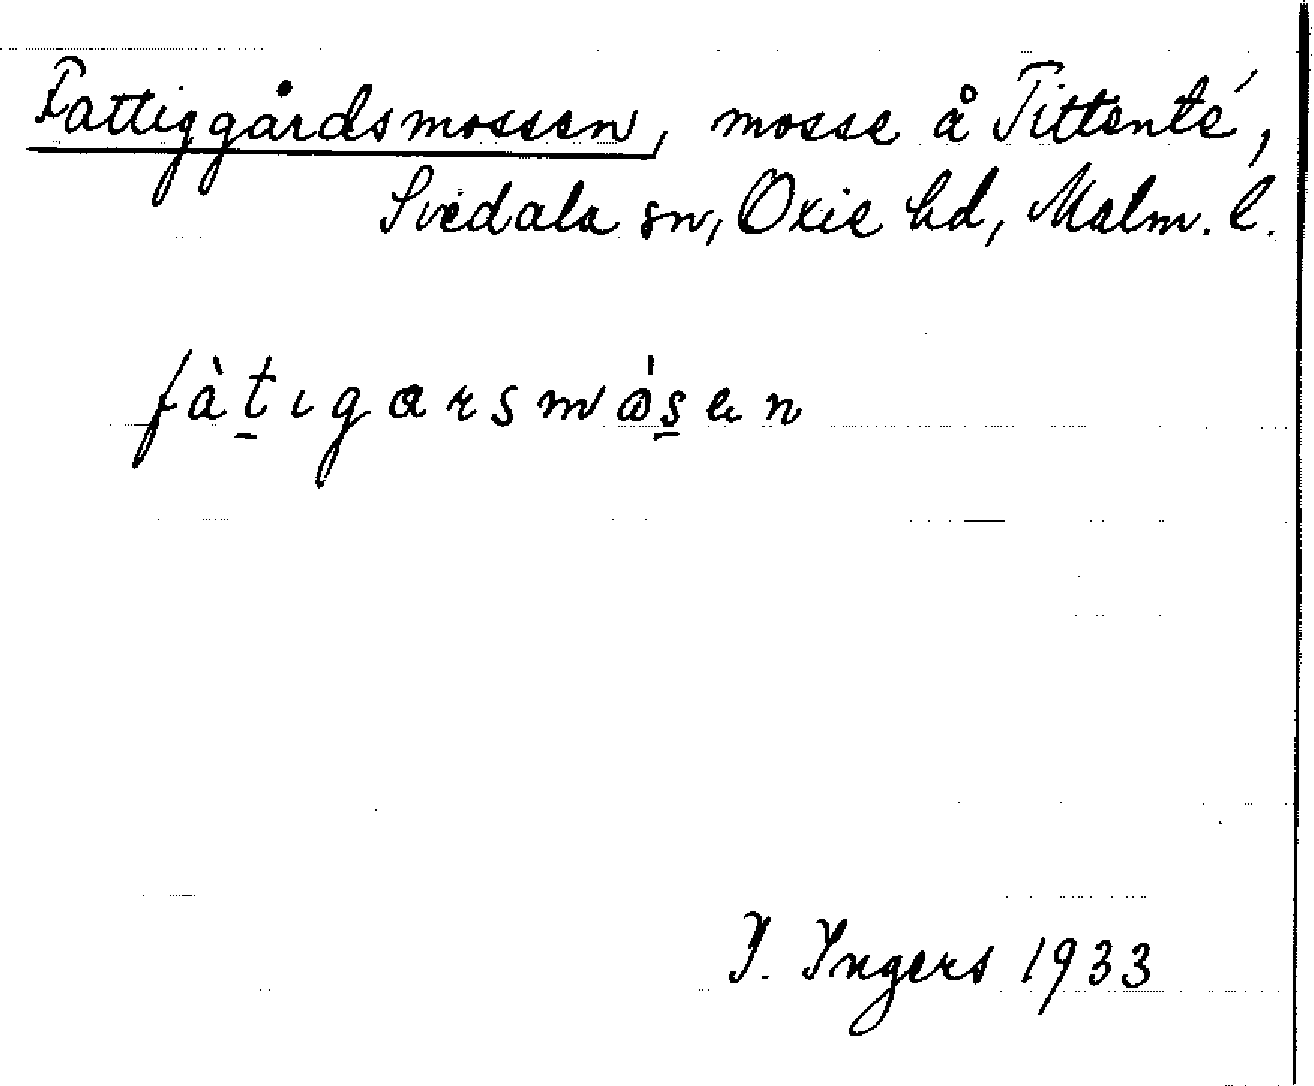 Fattiggårdsmossen, mosse å Tittenté,
Svedala sn, Oxie hd, Malm. l.
fàt̠ıgarsmås̠en
I. Ingers 1933